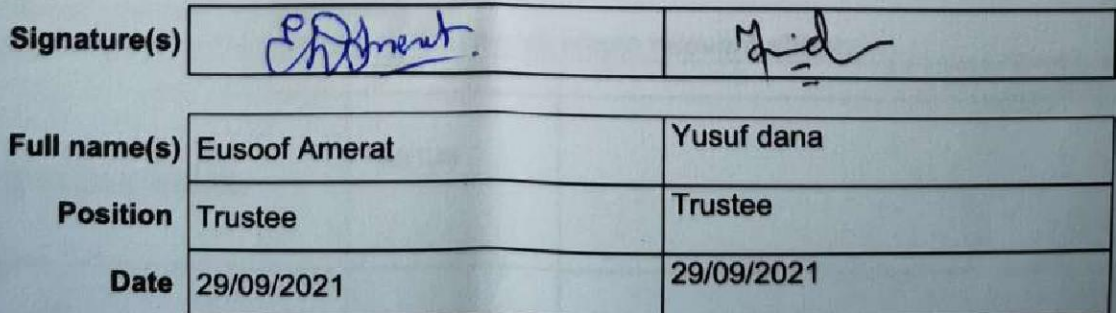 Signature(s)
Full name(s) Eusoof Amerat Yusuf dana
Position Trustee Trustee
Date 29/09/2021 29/09/2021